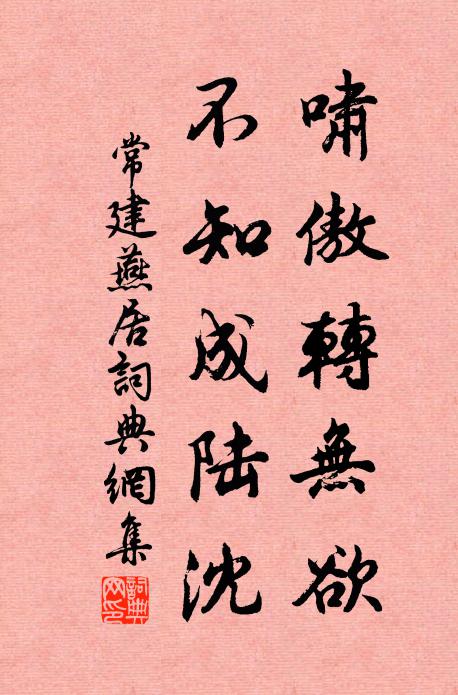 嘯傲轉無欲
不知成陆沈
常建燕居詞典網集
詞典網印